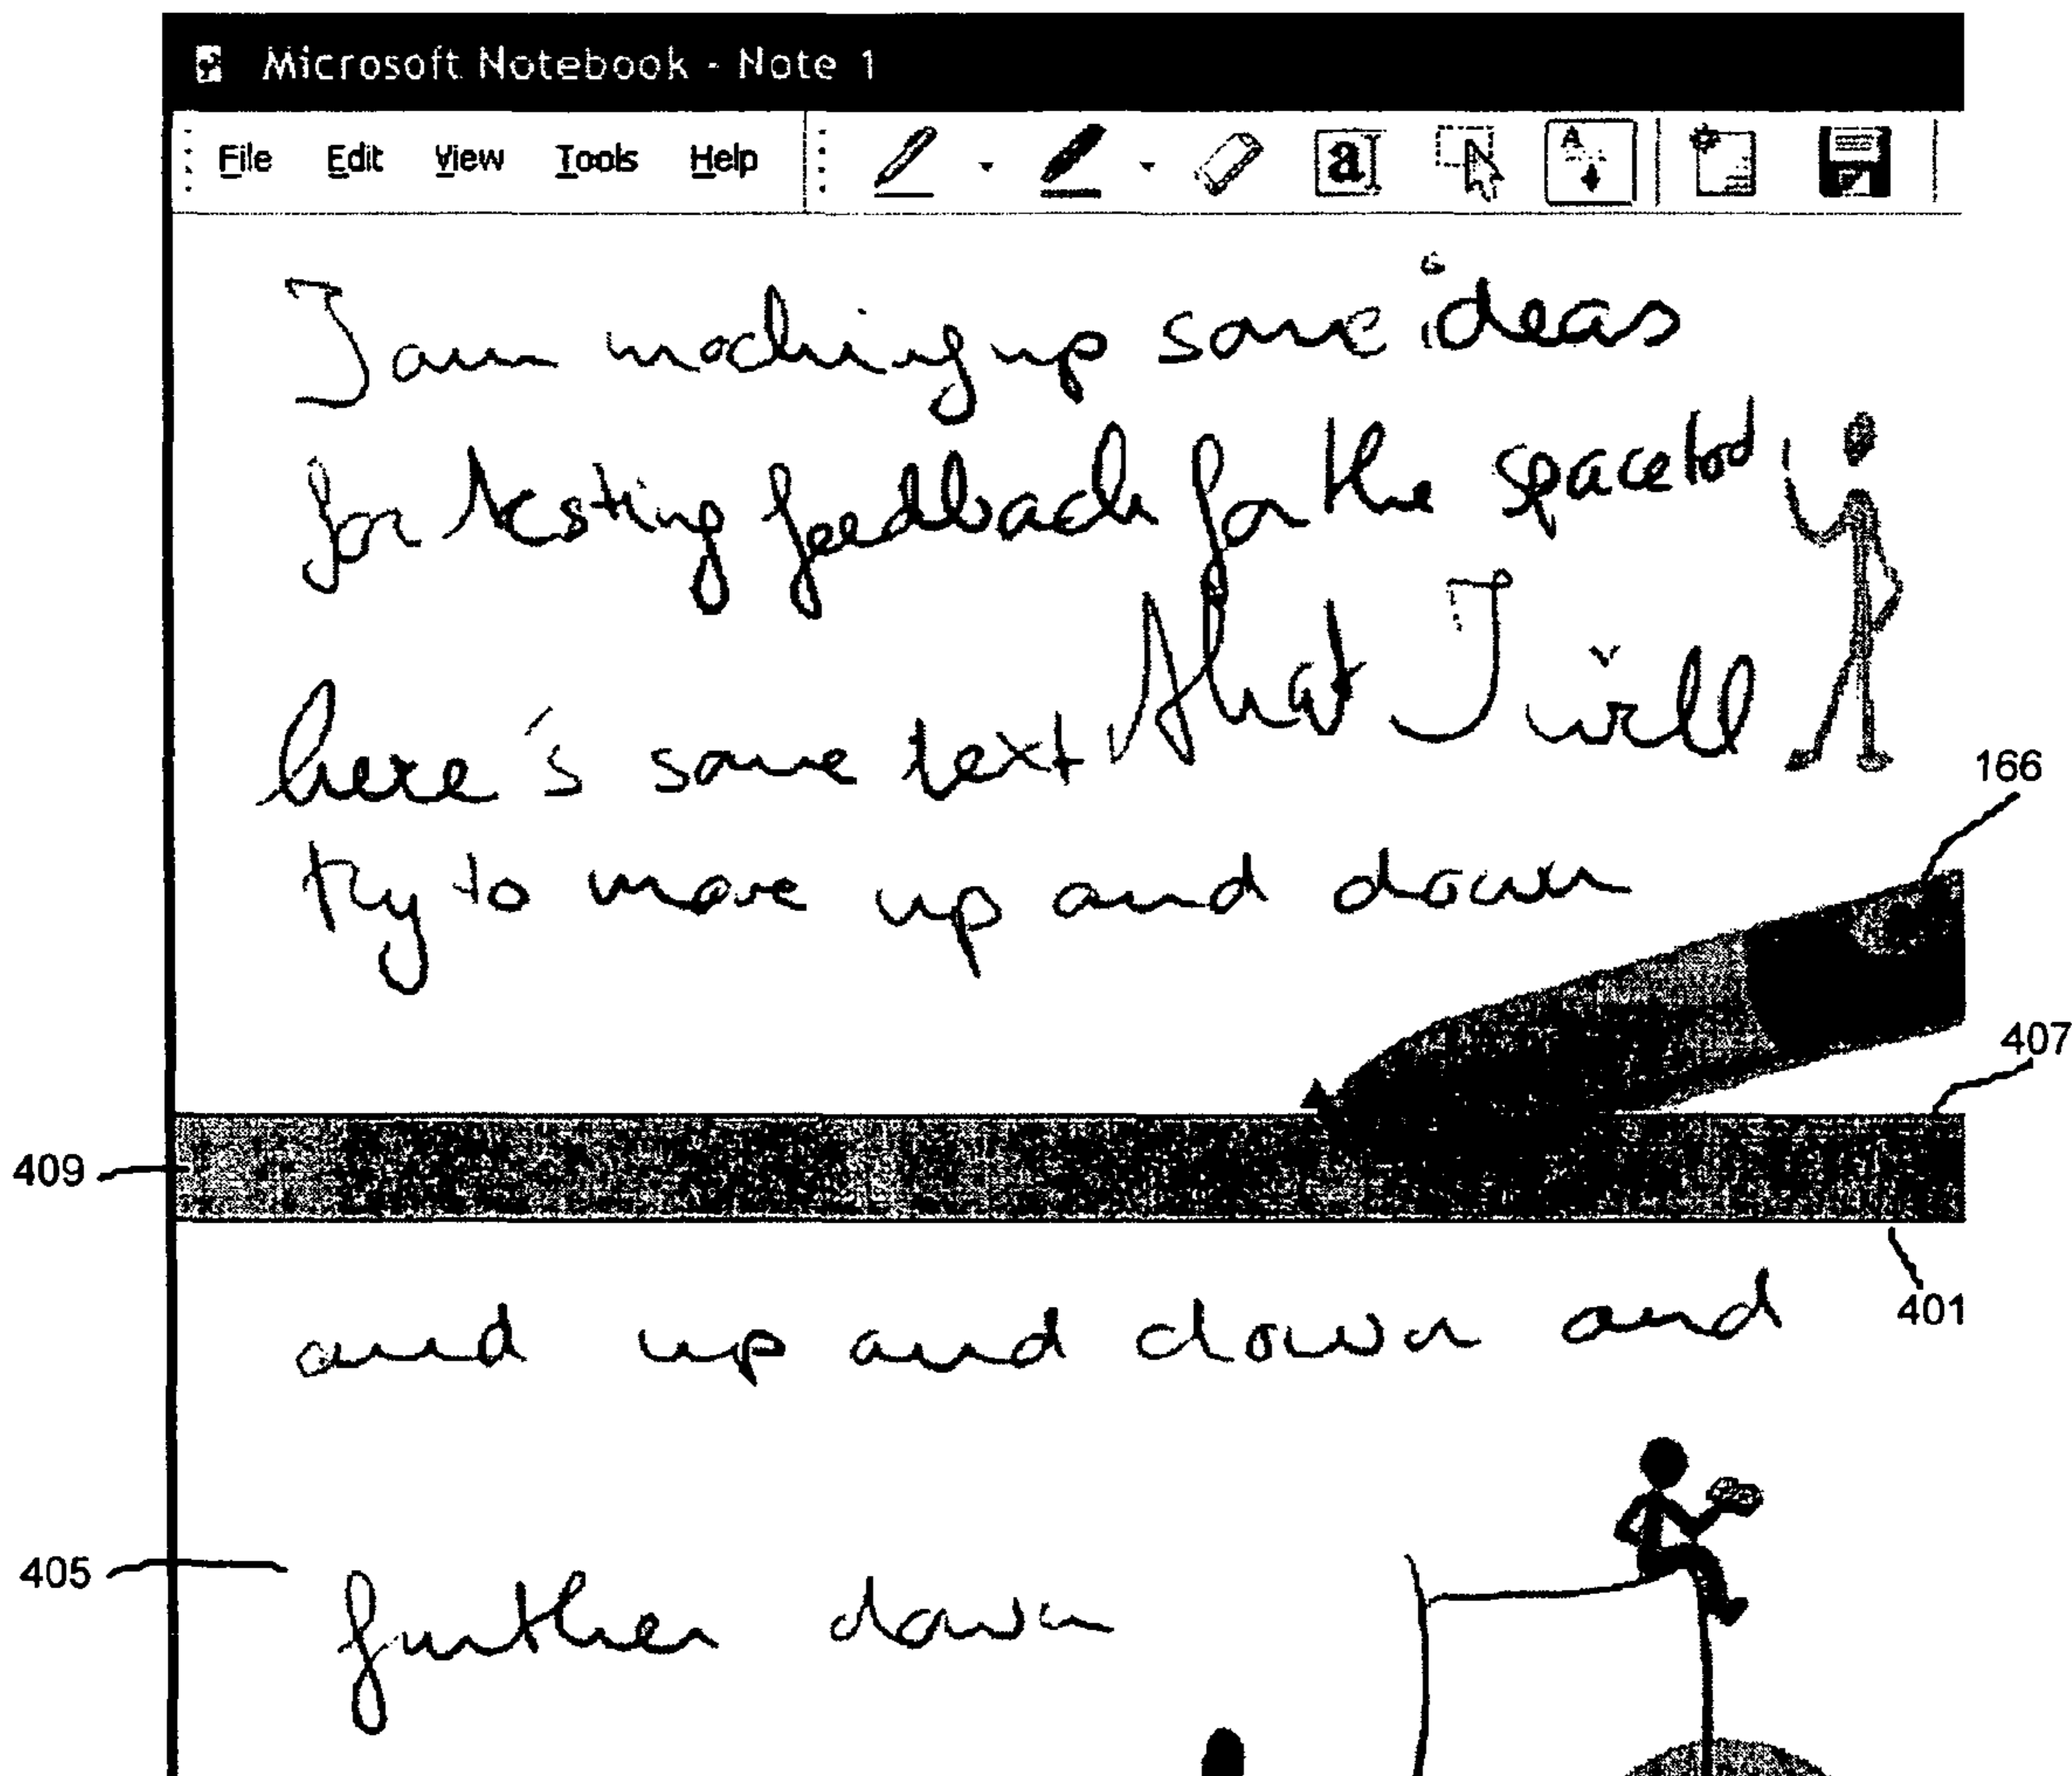 Microsoft Notebook - Note 1
File Edit View Tools Help a A
I am moching up some ideas
for testing feedback for the space tool
here's some text that I will
166
try to move up and down
407
409
401
and up and down and
405
further down